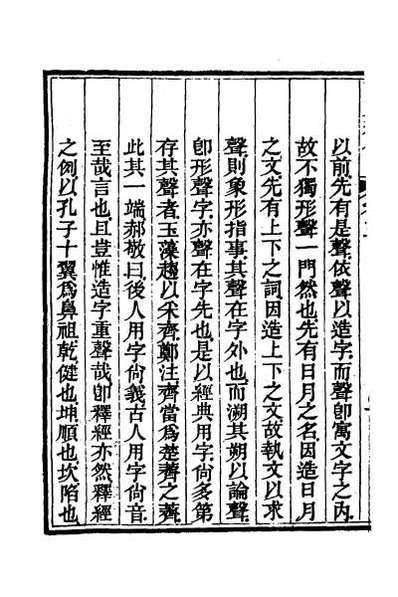 以前先有是聲依聲以造字而聲卽寓文字之內
故不獨形聲一門然也先有日月之名因造日月
之文先有上下之詞因造上下之文故執文以求
聲則象形指事其聲在字外也而溯其朔以論聲
卽形聲字亦聲在字先也是以經典用字尙多第
存其聲者玉藻趨以采齊鄭注齊當爲楚薺之薺
此其一端郝敬曰後人用字尙義古人用字尙音
至哉言也且豈惟造字重聲哉卽釋經亦然釋經
之例以孔子十翼爲鼻祖乾健也坤順也坎陷也